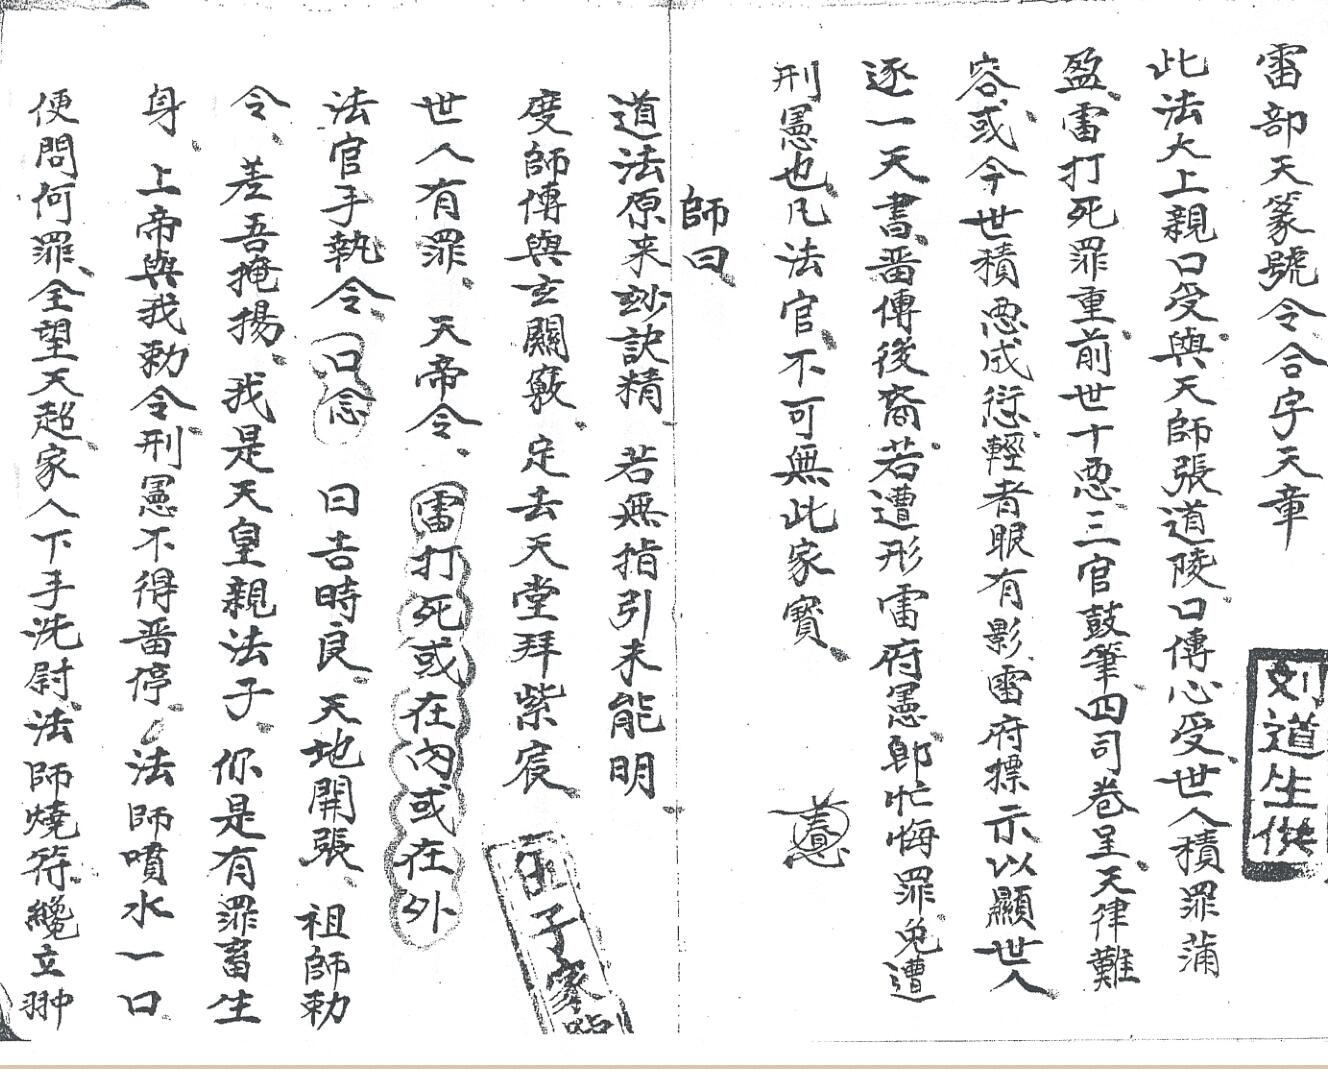 雷部天篆號令合字天章
此法大上親口受與天師張道陵口傳心受世人積罪蒲
盈雷打死罪重前世十悪三官鼓筆四司卷呈天律難
容或今世積悪成愆輕者眼有影雷府標示以顯世人
逐一天書畨傳後裔若遭形雷府憲郎忙悔罪免遭
刑憲也凡法官不可無此家寳
師曰
道法原来玅訣精 若無指引未能明
度師傳與玄關竅 定去天堂拜紫宸
世人有罪 天帝令 雷打死或在內或在外
法官手執令 口念 日吉時良 天地開張 祖師勅
令 差吾掩揚 我是天皇親法子 你是有罪畜生
身 上帝與我勅令刑憲不得畨停 法師噴水一口
便問何罪 全望天超家人下手洗尉法師燒符纔立翀
刘道生
子家